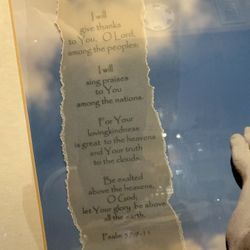 I will
give thanks
to You, O Lord,
among the peoples.
I will
sing praises
to You
among the nations.
For Your
lovingkindness
is great to the heavens
and Your truth
to the clouds.
Be exalted
above the heavens,
O God;
let Your glory be above
all the earth.
Psalm 57:9-11